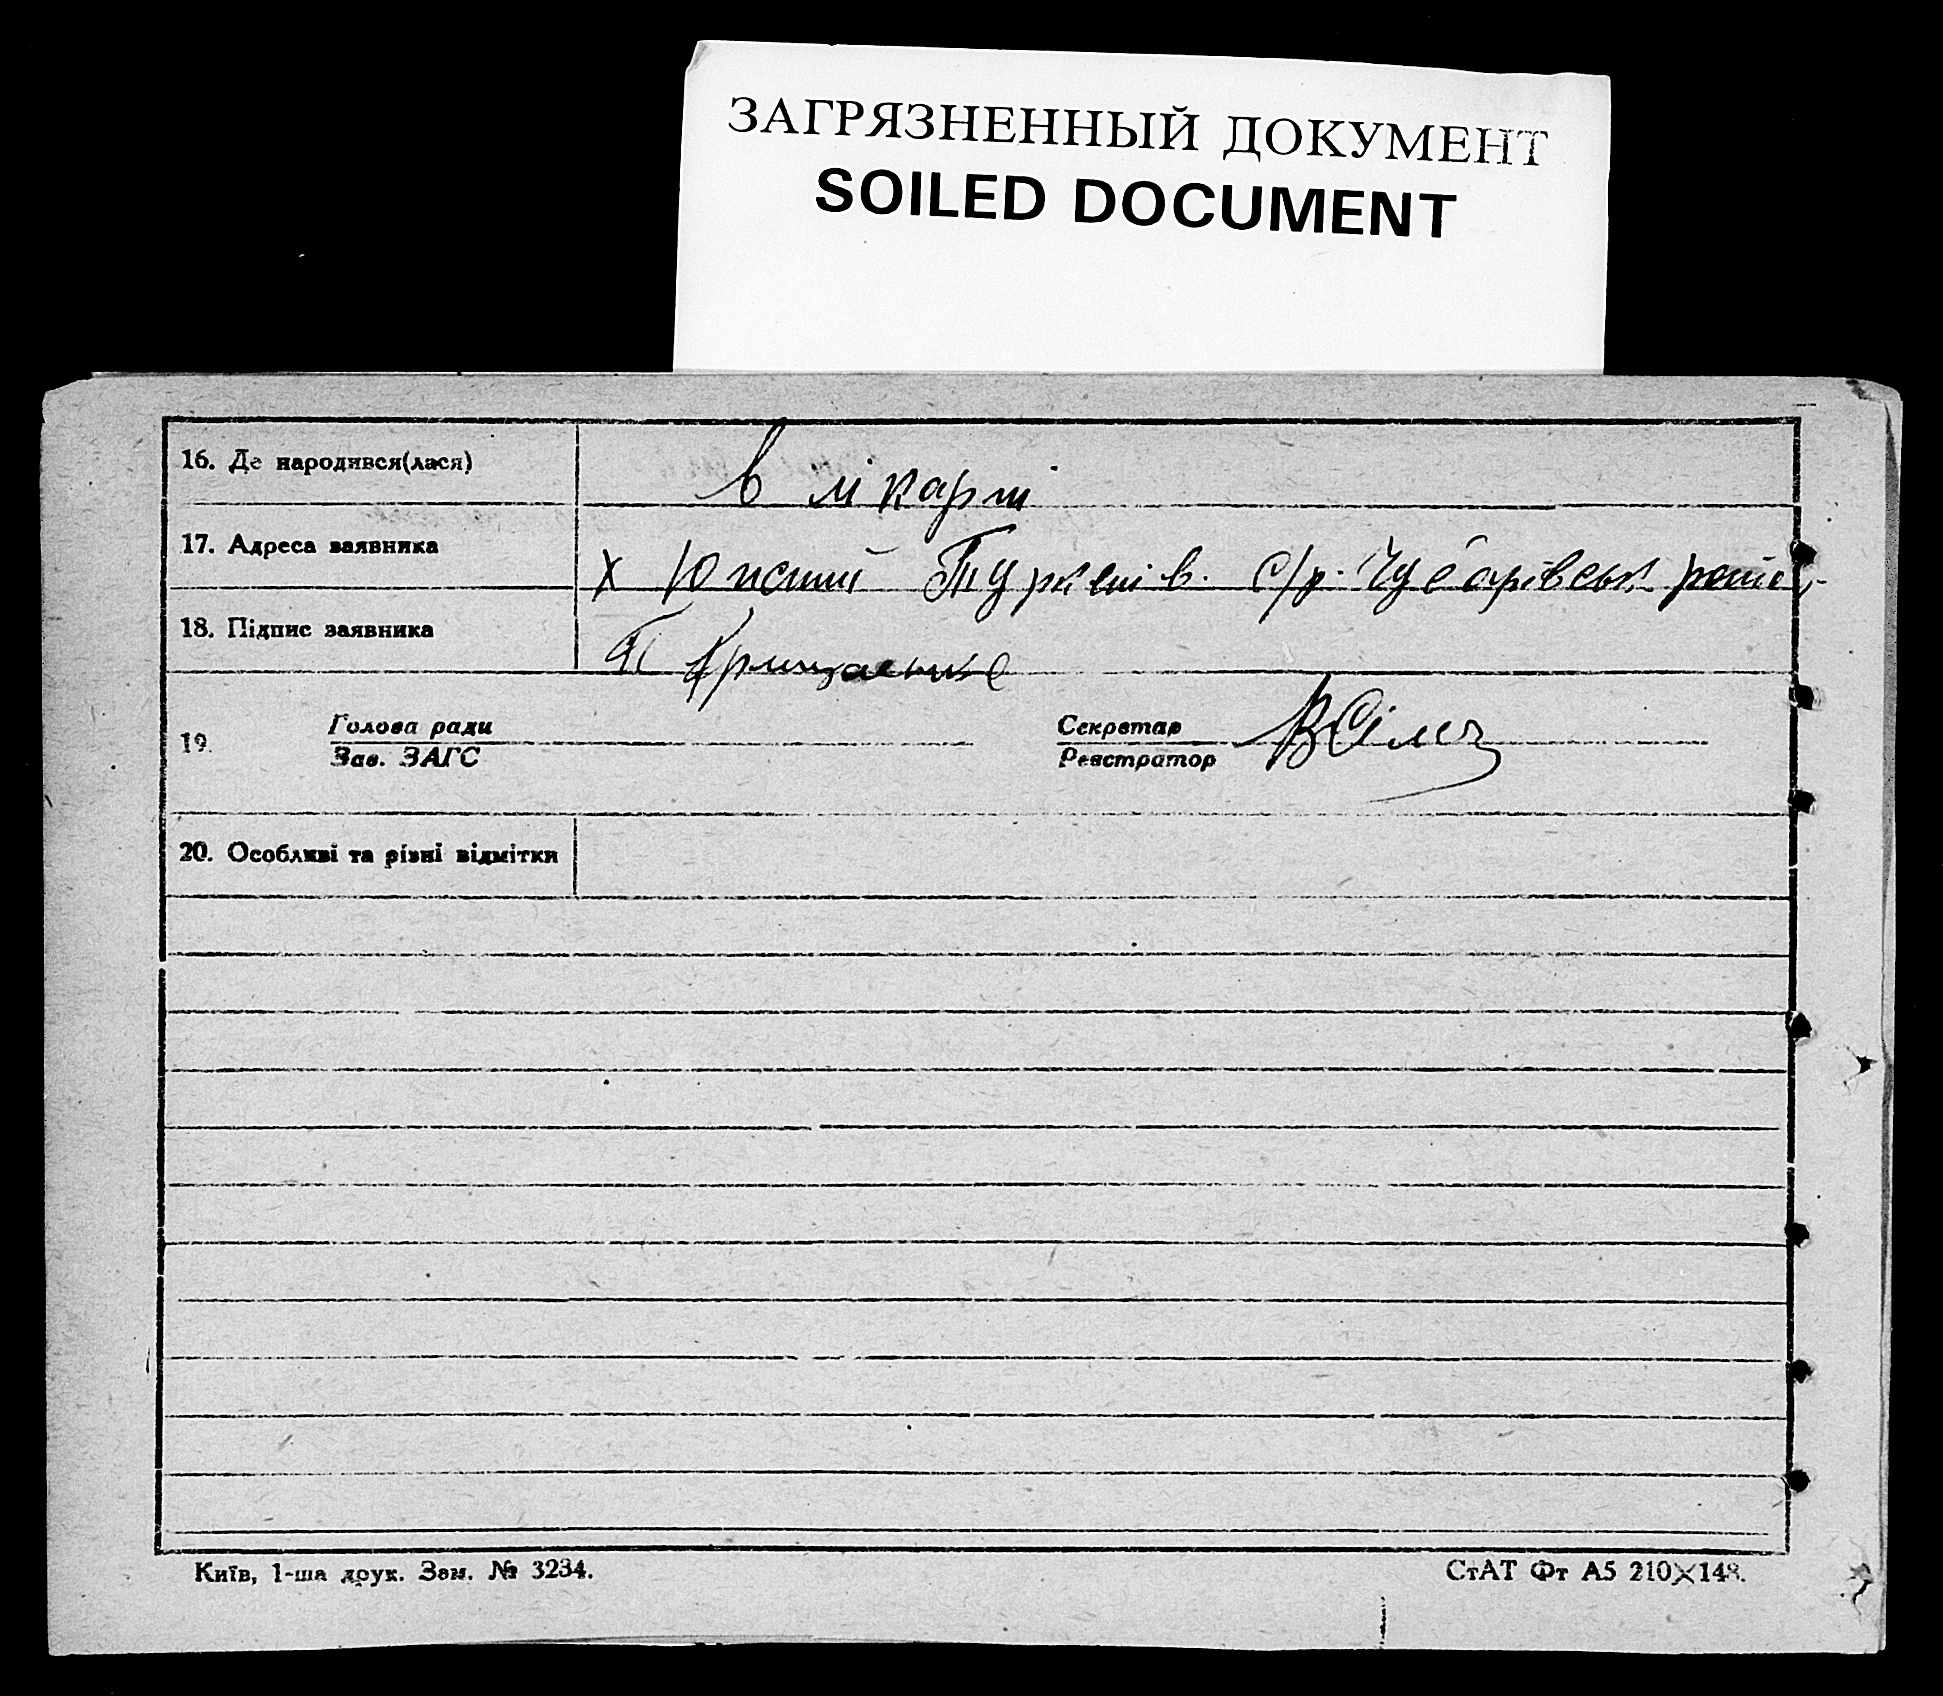 ЗАГРЯЗНЕННЫЙ ДОКУМЕНТ
SOILED DOCUMENT
16. Де народився(лася)
в лікарні
17. Адреса заявника
х с/р. Чубарівськ
18. Підпис заявника
Грищенко
19. Голова ради
Зав. ЗАГС
Секретар
Реєстратор
20. Особливі та різні відмітки
Київ, 1-ша друк. Зам. № 3234.
СтАТ Фт А5 210×148.